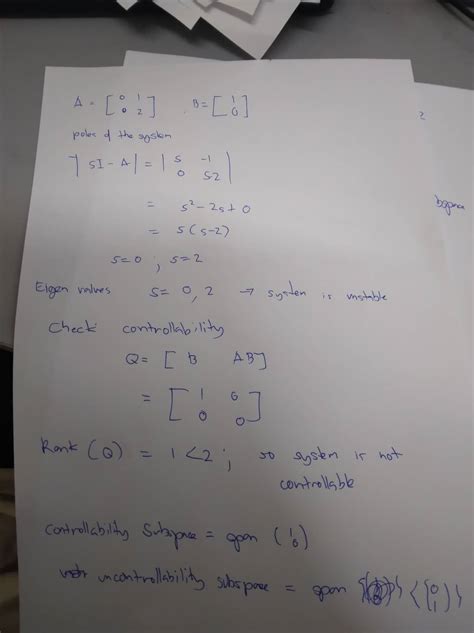 A = [ 0 1
0 2 ] , B = [ 1
0 ]
2
poles of the system
| SI - A | = | S -1
0 S-2 |
= s² - 2s + 0
= s (s-2)
s=0 ; s=2
Eigen values s= 0, 2 → system is unstable
Check controllability
Q = [ B AB ]
= [ 1 0
0 0 ]
Rank (Q) = 1 < 2 ; so system is not
controllable
Controllability Subspace = span ( 1
0 )
uncontrollability subspace = span { 0
1 }